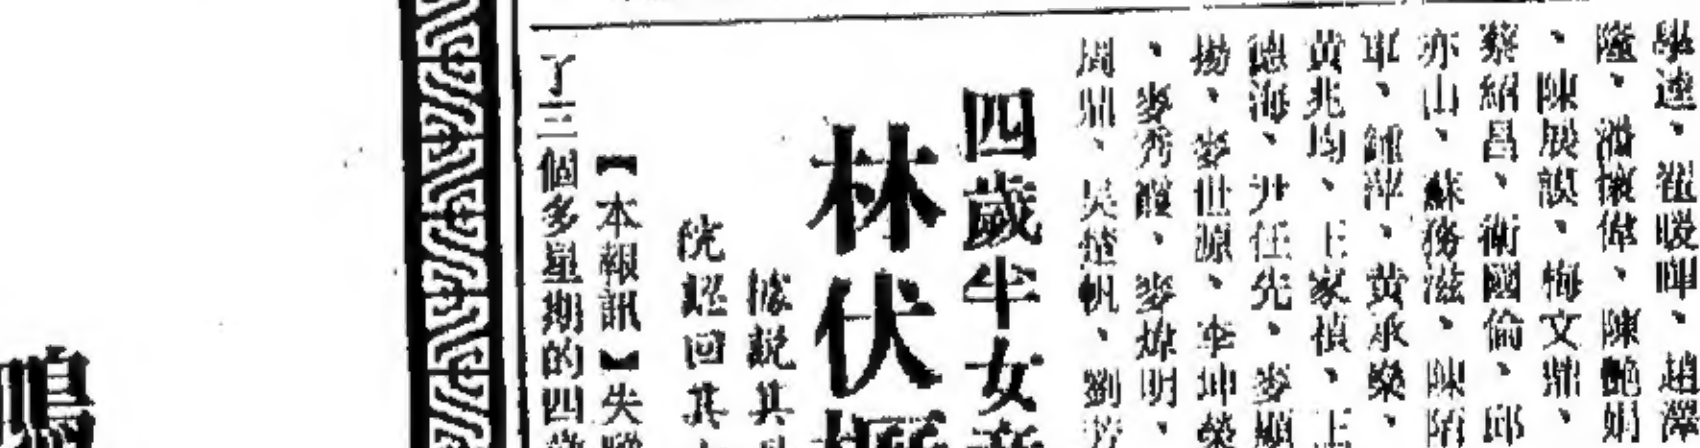 學達、翟暖暉、趙澤
隆、潘懷偉、陳艷娟
、陳展謨、梅文鼎、
蔡紹昌、衛國倫、邱
亦山、蘇務滋、陳陌
軍、鍾萍、黃承燊、
黃兆均、王家楨、王
德海、尹任先、麥顯
揚、麥世源、李坤榮
、麥秀霞、麥煒明、
周鼎、吳楚帆、劉芳
四歲半女童
林伏
據説其
院經回其
【本報訊】失
了三個多星期的四歲
鳴